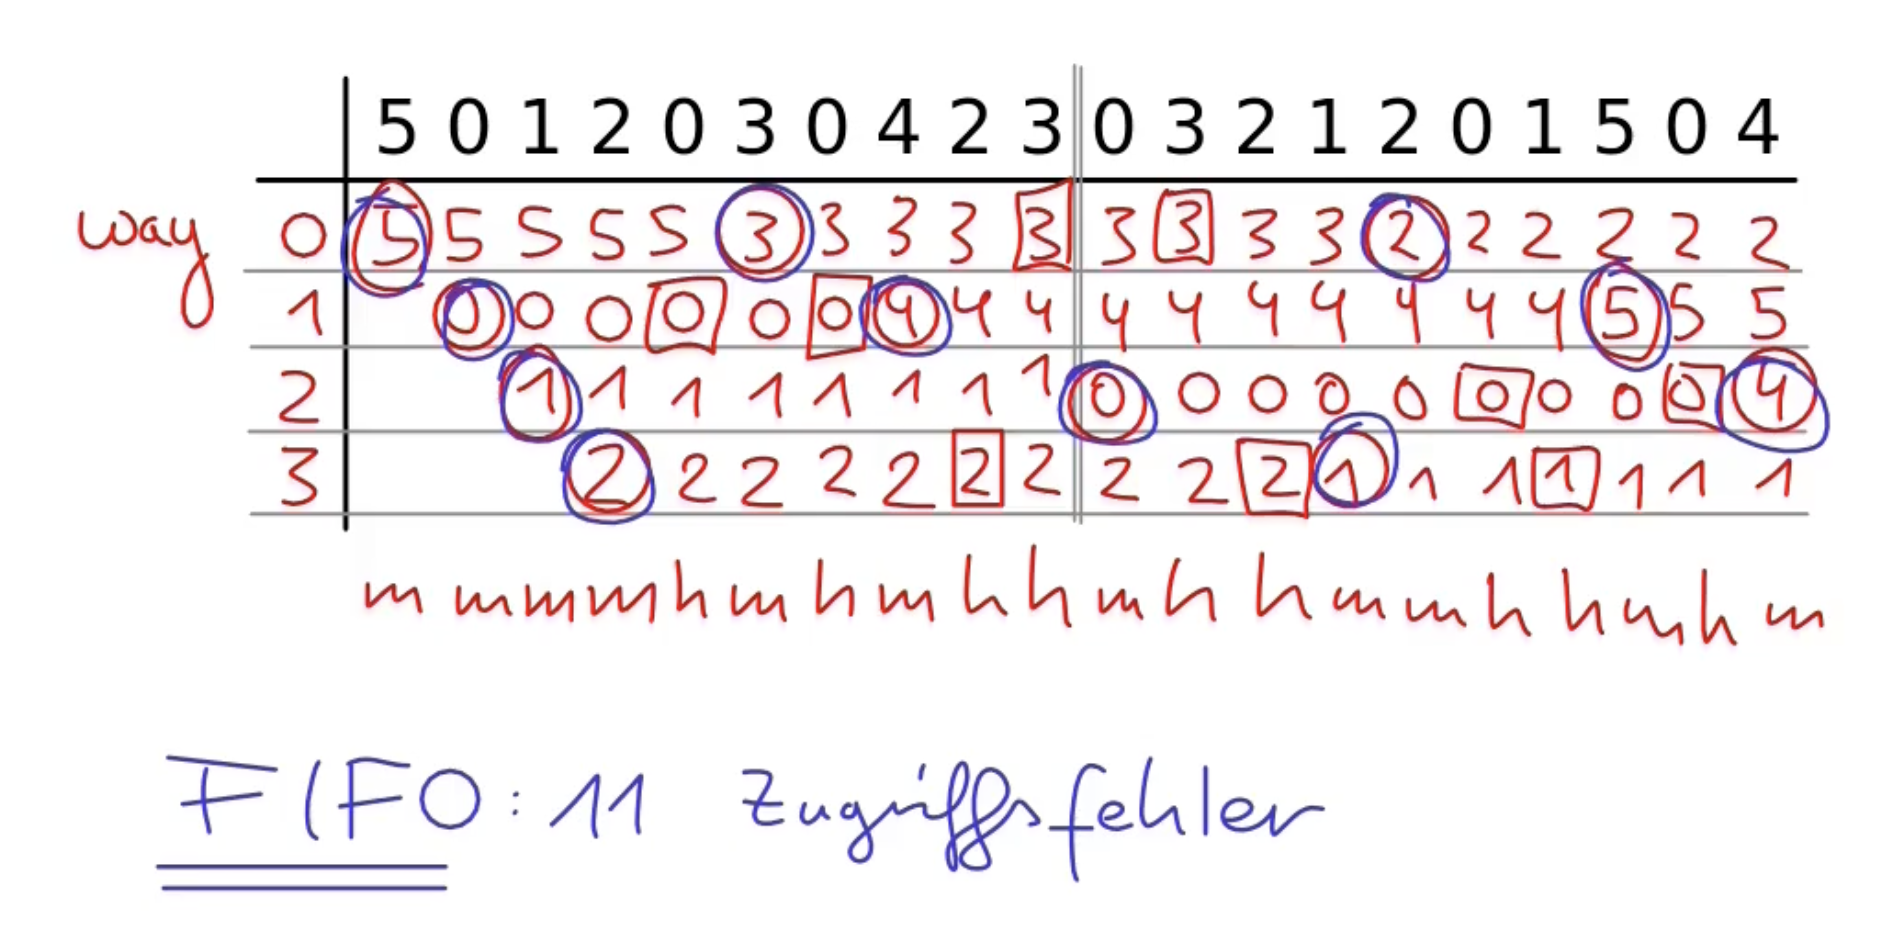 5 0 1 2 0 3 0 4 2 3 0 3 2 1 2 0 1 5 0 4
way 0 5 5 5 5 5 3 3 3 3 3 3 3 3 3 2 2 2 2 2 2
1 0 0 0 0 0 0 4 4 4 4 4 4 4 4 4 4 5 5 5
2 1 1 1 1 1 1 1 1 0 0 0 0 0 0 0 0 0 4
3 2 2 2 2 2 2 2 2 2 2 1 1 1 1 1 1 1
m m m m h m h m h h m h h m m h h m h m
FIFO: 11 Zugriffsfehler